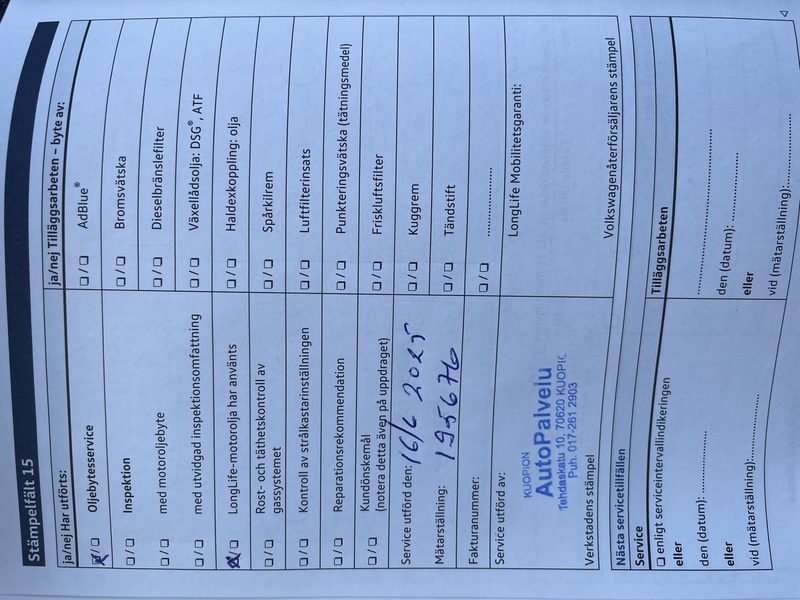 Stämpelfält 15
ja/nej Har utförts:
☒/☐ Oljebytesservice
☐/☐ Inspektion
☐/☐ med motoroljebyte
☐/☐ med utvidgad inspektionsomfattning
☒/☐ LongLife-motorolja har använts
☐/☐ Rost- och täthetskontroll av
gassystemet
☐/☐ Kontroll av strålkastarinställningen
☐/☐ Reparationsrekommendation
☐/☐ Kundönskemål
(notera detta även på uppdraget)
Service utförd den: 16/6 2025
Mätarställning: 195676
Fakturanummer:
Service utförd av:
KUOPION
AutoPalvelu
Tehdaskatu 10, 70620 KUOPIO
Puh. 017-261 2903
Verkstadens stämpel
ja/nej Tilläggsarbeten – byte av:
☐/☐ AdBlue®
☐/☐ Bromsvätska
☐/☐ Dieselbränslefilter
☐/☐ Växellådsolja: DSG®, ATF
☐/☐ Haldexkoppling: olja
☐/☐ Spårkilrem
☐/☐ Luftfilterinsats
☐/☐ Punkteringsvätska (tätningsmedel)
☐/☐ Friskluftsfilter
☐/☐ Kuggrem
☐/☐ Tändstift
☐/☐ ....................
LongLife Mobilitetsgaranti:
Volkswagenåterförsäljarens stämpel
Nästa servicetillfällen
Service
☐ enligt serviceintervallindikeringen
eller
den (datum): ....................
eller
vid (mätarställning):....................
Tilläggsarbeten
........................................
den (datum): ....................
eller
vid (mätarställning):....................